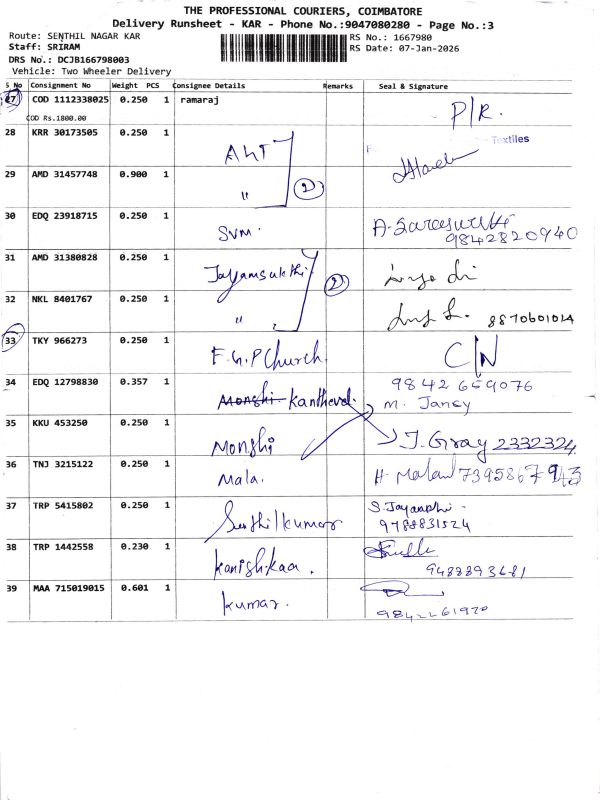 THE PROFESSIONAL COURIERS, COIMBATORE
Delivery Runsheet - KAR - Phone No.:9047080280 - Page No.:3
Route: SENTHIL NAGAR KAR
RS No.: 1667980
Staff: SRIRAM
RS Date: 07-Jan-2026
DRS No.: DCJB166798003
Vehicle: Two Wheeler Delivery
S No Consignment No Weight PCS Consignee Details Remarks Seal & Signature
27 COD 1112338025 0.250 1 ramaraj P/R.
COD Rs.1800.00
28 KRR 30173505 0.250 1 Textiles
29 AMD 31457748 0.900 1 " 2
30 EDQ 23918715 0.250 1 SVM. 9842820940
31 AMD 31380828 0.250 1 2
32 NKL 8401767 0.250 1 " 8870601014
33 TKY 966273 0.250 1 F.G.P Church. C/N
34 EDQ 12798830 0.357 1 Monshi Kanthevel. 9842669076
M. Jancy
35 KKU 453250 0.250 1 Monshi J. Gray 2332324
36 TNJ 3215122 0.250 1 Mala. 7395867943
37 TRP 5415802 0.250 1 Senthilkumar S. Jayanthi
9788831524
38 TRP 1442558 0.230 1 Kanishkaa. 9488893681
39 MAA 715019015 0.601 1 Kumar. 9842261920